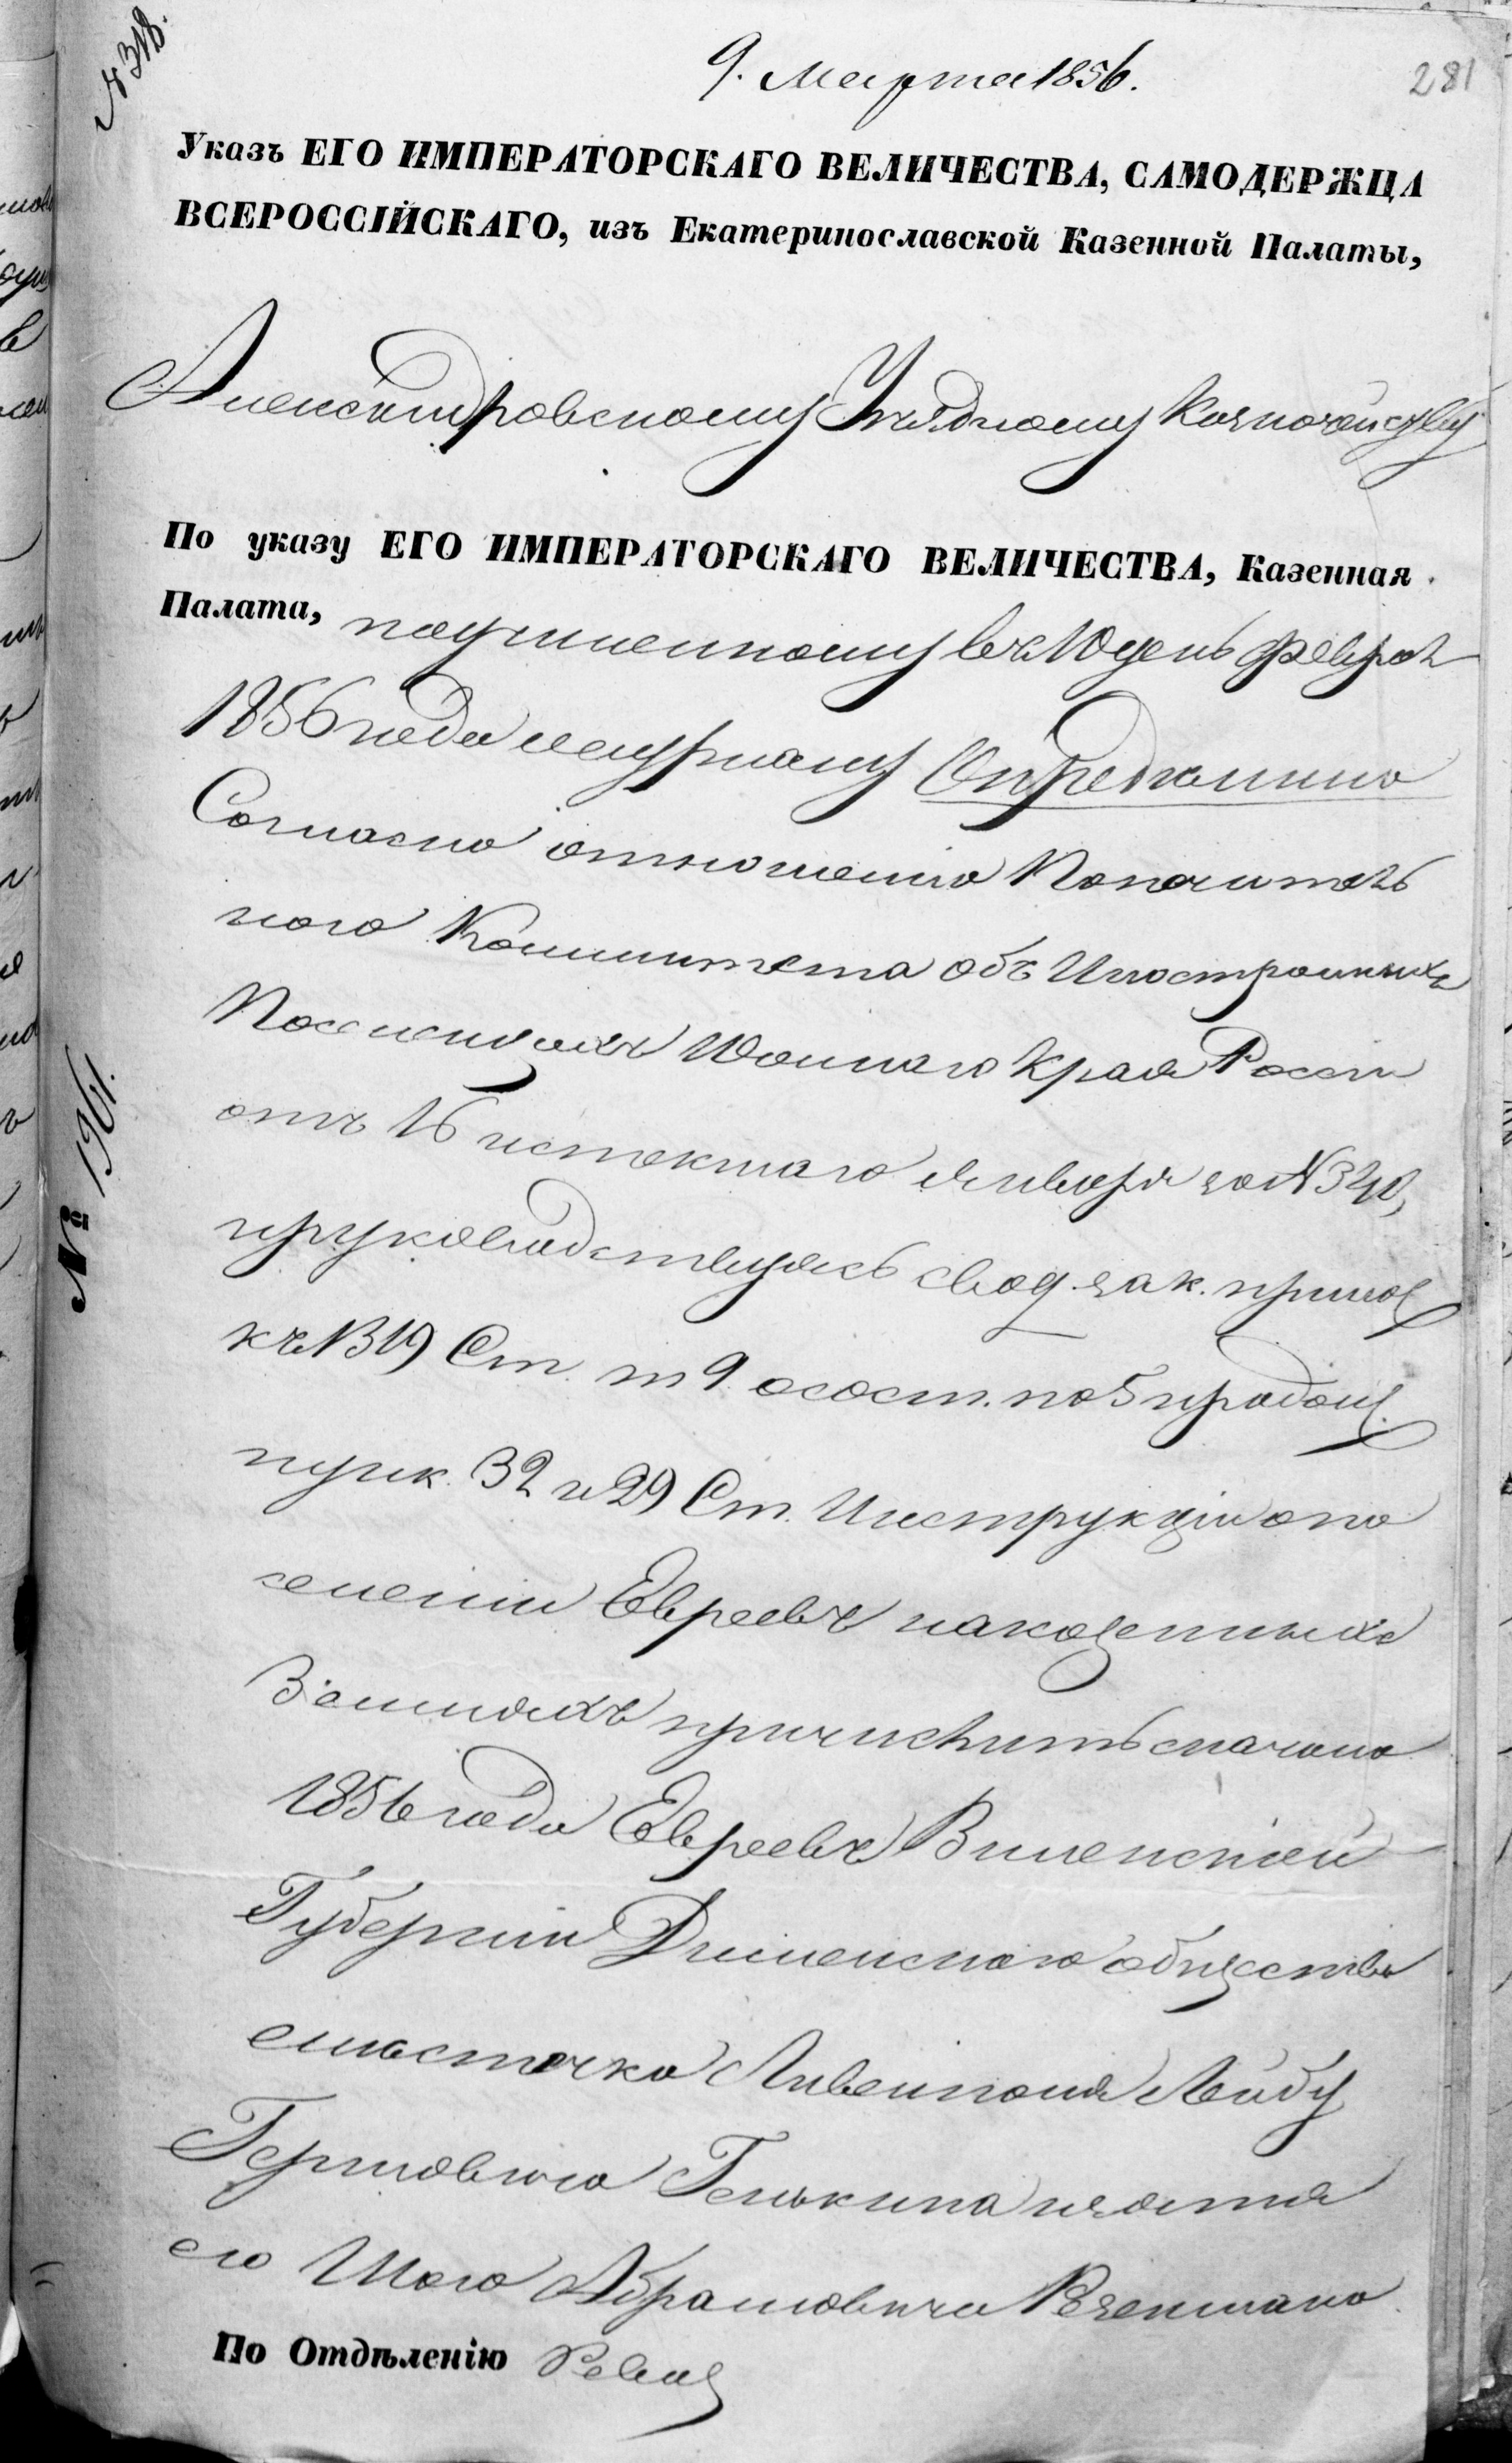 № 318.
9. Марта 1856.
281
Указъ ЕГО ИМПЕРАТОРСКАГО ВЕЛИЧЕСТВА, САМОДЕРЖЦА
ВСЕРОССІЙСКАГО, изъ Екатеринославской Казенной Палаты,
Александровскому Уѣздному Казначейству
По указу ЕГО ИМПЕРАТОРСКАГО ВЕЛИЧЕСТВА, Казенная
Палата, по въ 10 день Февраля
1856 года журналу Опредѣлила
Согласно отношенію Попечитель
наго Комитета объ Иностранныхъ
Поселенцахъ Южнаго Края Россіи
отъ 16 истекшаго Января за № 340,
и руководствуясь свод. зак. примѣч
къ 1319 Ст. т 9 о сост. по 5 продолж.
пунк. 32 и 29 Ст. Инструкціи о по
селеніи Евреевъ на казенныхъ
Земляхъ причислить съ начала
1856 года Евреевъ Виленской
Губерніи Дисненскаго общества
Лейбу
Генькина и зятя
его Абрамовича
По Отдѣленію Ревиз
№ 1961.